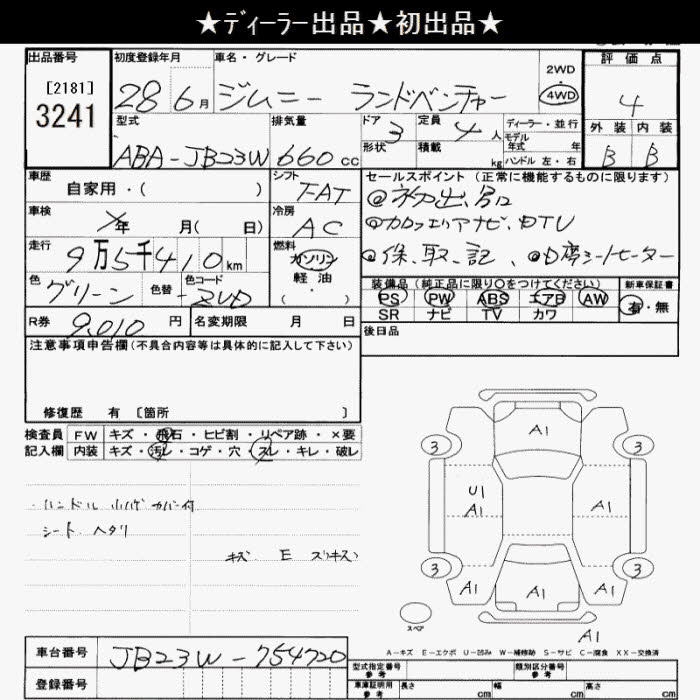 ★ディーラー出品★初出品★
出品番号 初度登録年月 車名・グレード 評価点
[2181]
3241
28 6月 ジムニー ランドベンチャー 2WD ・ 4WD 4
型式 排気量 ドア 3 定員 4人 ディーラー・並行 外装 内装
モデル年式 年
ABA-JB23W 660cc 形状 積載 kg ハンドル 左・右 B B
車歴 自家用・( ) シフト FAT セールスポイント(正常に機能するものに限ります)
@初出品
車検 年 月( 日) 冷房 AC @カロッェリアナビ、DTV
走行 9万5千410km 燃料 ガソリン @保、取、記、 @D席シートヒーター
軽油
( )
色 グリーン 色替 色コード ZVD 装備品(純正品に限り○をつけてください) 新車保証書
PS PW ABS エアB AW 有・無
SR ナビ TV カワ
R券 9,010円 名変期限 月 日 後日品
注意事項申告欄(不具合内容等は具体的に記入して下さい)
修復歴 有 [箇所 ]
検査員 FW キズ・飛石・ヒビ割・リペア跡・×要
記入欄 内装 キズ・汚レ・コゲ・穴・スレ・キレ・破レ
・ハンドル 小ハゲ カバー付
シート ヘタリ
キズ E スリキズ
A1
3 3
U1
A1 A1
3 3
A1 A1 A1
スペア
A-キズ E-エクボ U-凹み W-補修跡 S-サビ C-腐食 XX-交換済
A1
車台番号 JB23W-754720
登録番号
型式指定番号 参考 類別区分番号 参考
車庫証明用 参考 長さ cm 幅 cm 高さ cm